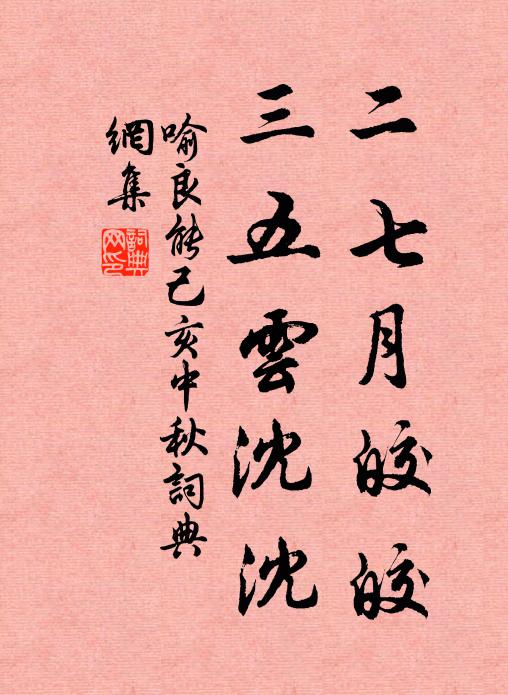 二七月皎皎
三五雲沈沈
喻良能己亥中秋詞典
網集
詞典
網印